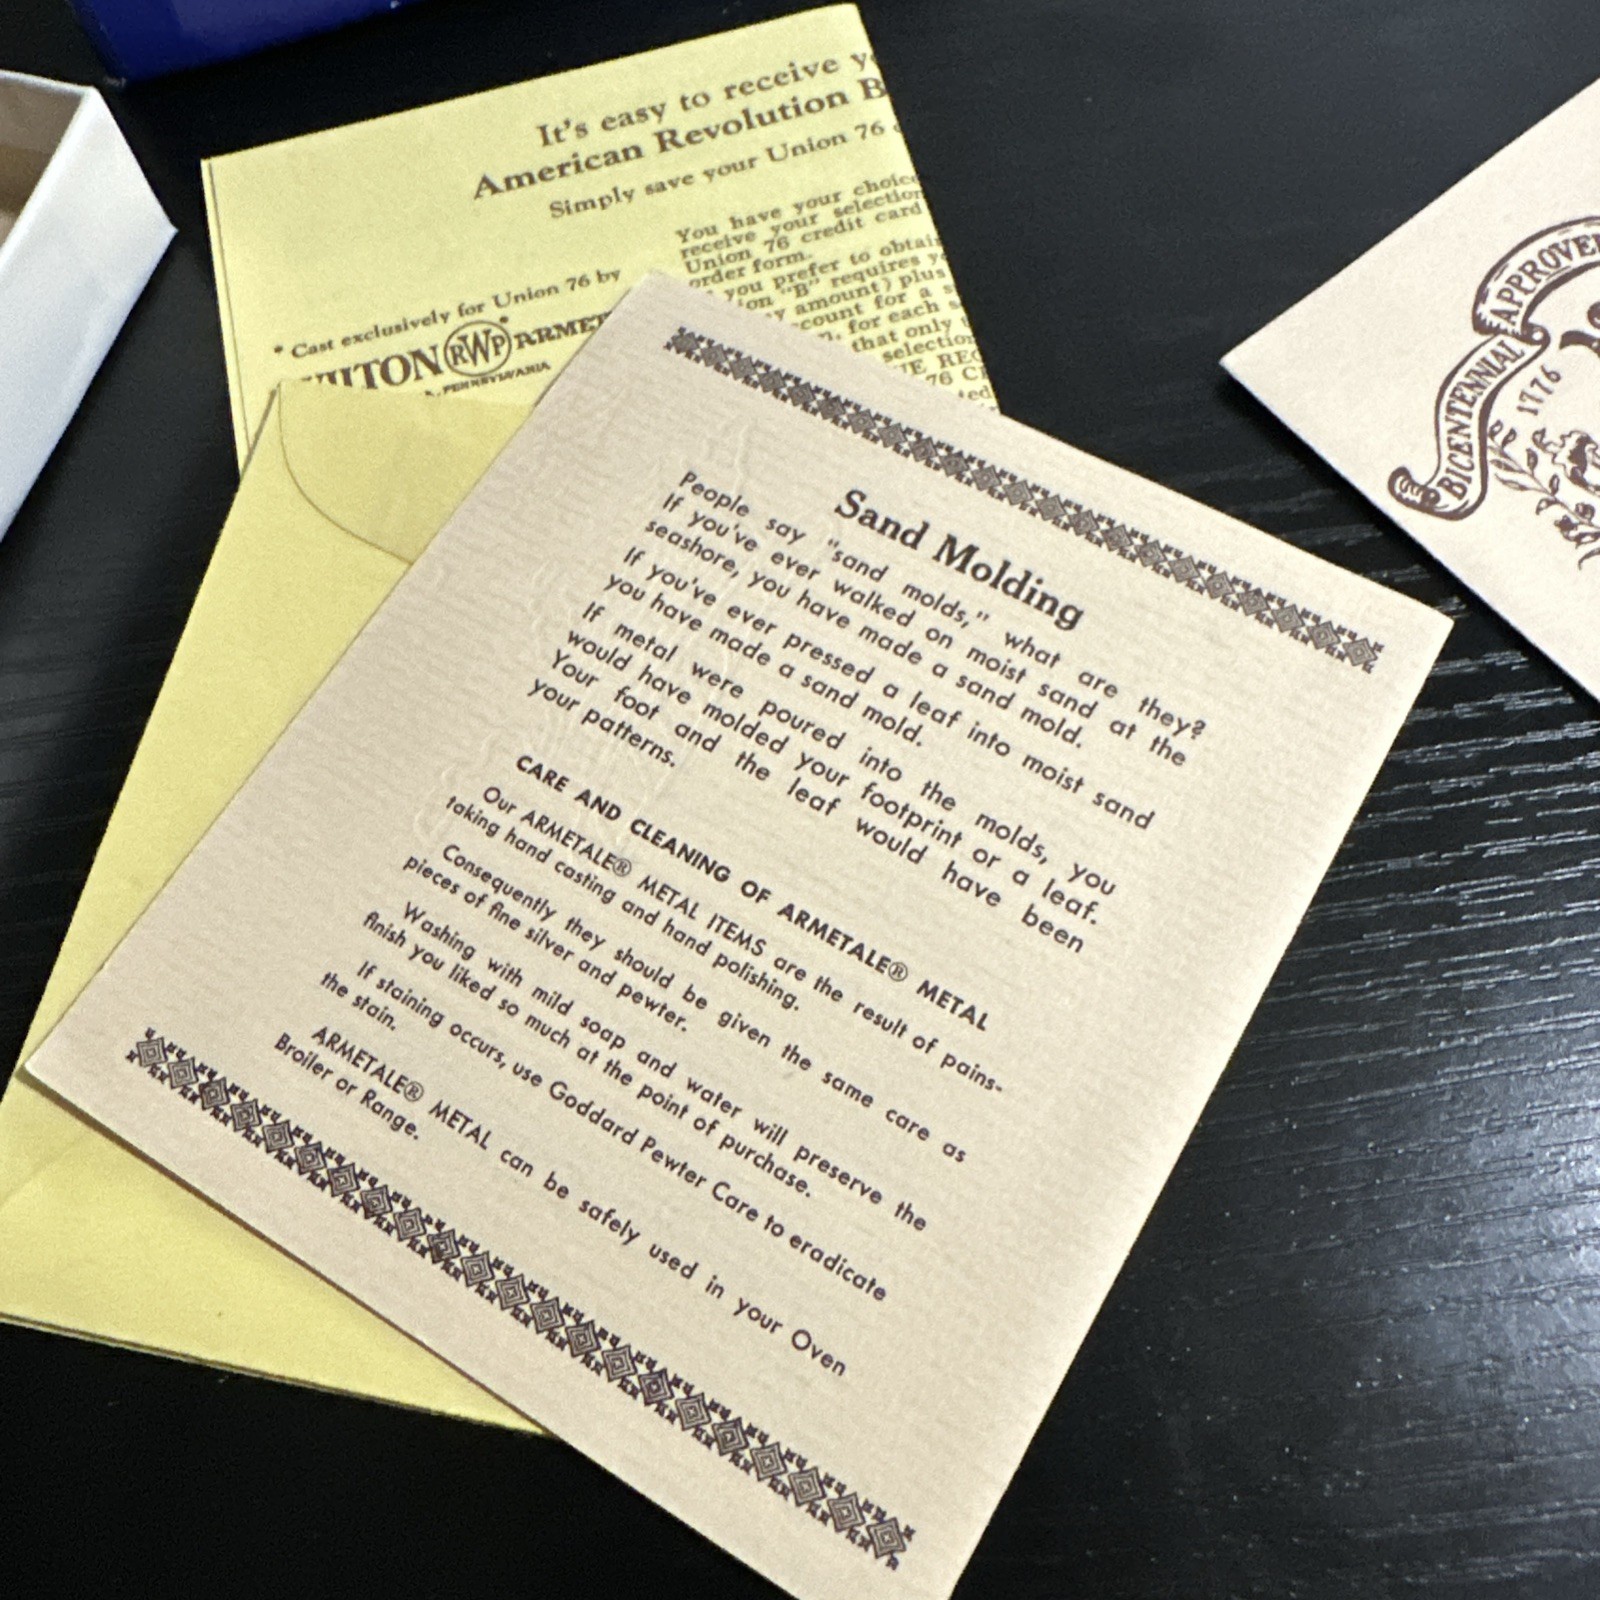 It's easy to receive
American Revolution
Simply save your Union 76
You have your choice
receive your selection
Union 76 credit card
order form.
you prefer to obtain
"B" requires
amount) plus
count for a
for each
that only
selection
76
* Cast exclusively for Union 76 by
RWP
PENNSYLVANIA
Sand Molding
People say "sand molds," what are they?
If you've ever walked on moist sand at the
seashore, you have made a sand mold.
If you've ever pressed a leaf into moist sand
you have made a sand mold.
If metal were poured into the molds, you
would have molded your footprint or a leaf.
Your foot and the leaf would have been
your patterns.
CARE AND CLEANING OF ARMETALE® METAL
Our ARMETALE® METAL ITEMS are the result of pains-
taking hand casting and hand polishing.
Consequently they should be given the same care as
pieces of fine silver and pewter.
Washing with mild soap and water will preserve the
finish you liked so much at the point of purchase.
If staining occurs, use Goddard Pewter Care to eradicate
the stain.
ARMETALE® METAL can be safely used in your Oven
Broiler or Range.
APPROVED
BICENTENNIAL
1776